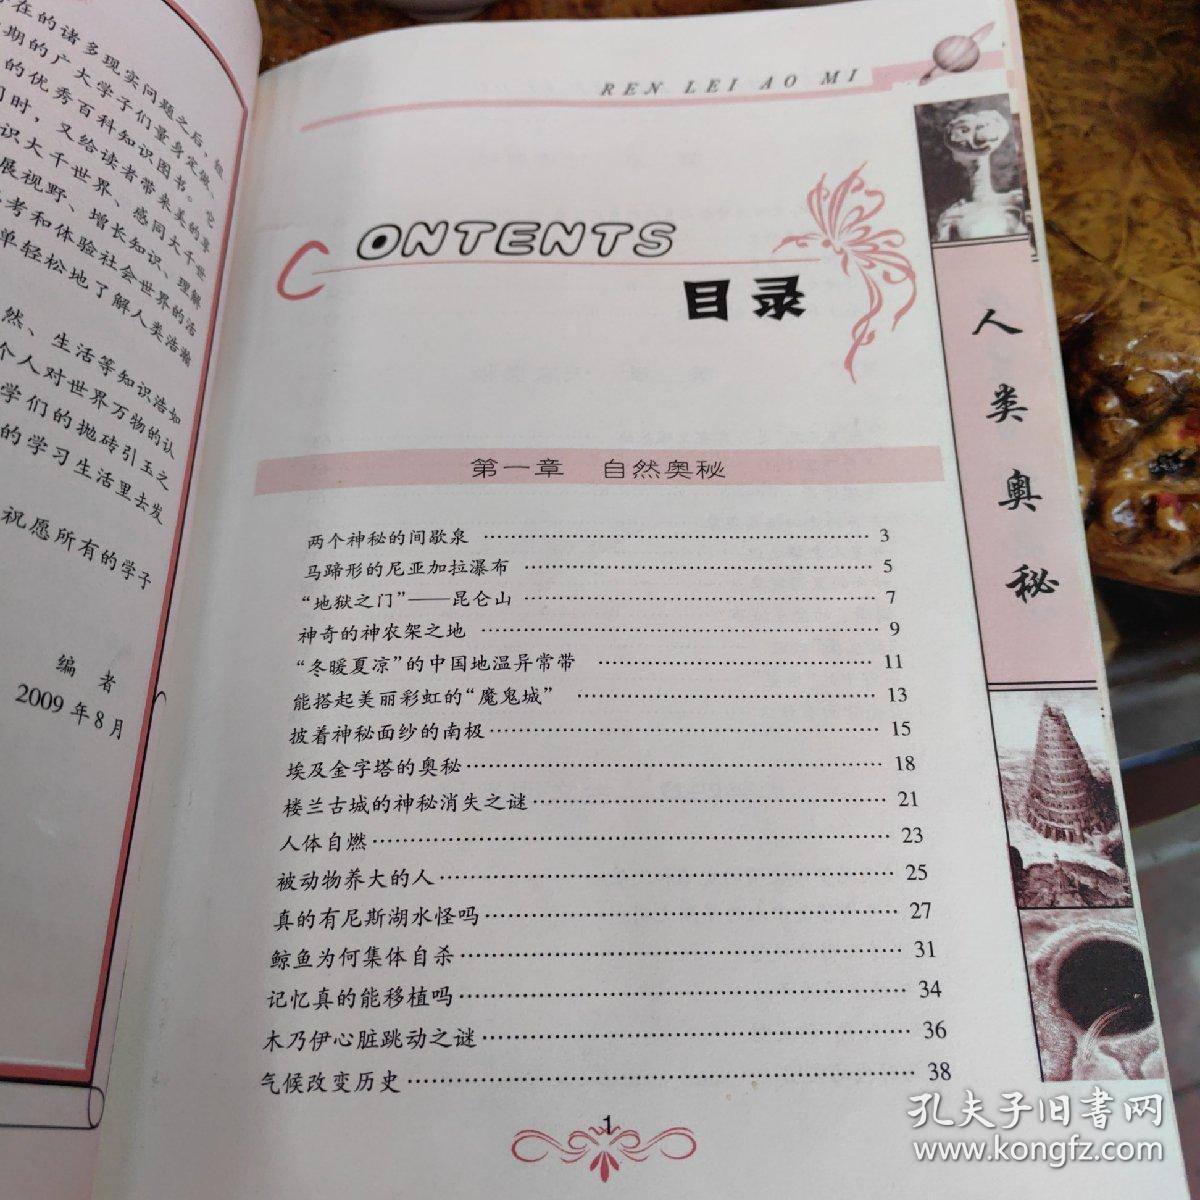 存在的诸多现实问题之后，组
期的广大学子们量身定做、
的优秀百科知识图书。它
同时，又给读者带来美的享
识大千世界、感同大千世
展视野、增长知识、理解
考和体验社会世界的活
单轻松地了解人类浩瀚
然、生活等知识浩如
个人对世界万物的认
学们的抛砖引玉之
的学习生活里去发
祝愿所有的学子
编 者
2009年8月
REN LEI AO MI
CONTENTS
目录
第一章 自然奥秘
两个神秘的间歇泉 3
马蹄形的尼亚加拉瀑布 5
“地狱之门”——昆仑山 7
神奇的神农架之地 9
“冬暖夏凉”的中国地温异常带 11
能搭起美丽彩虹的“魔鬼城” 13
披着神秘面纱的南极 15
埃及金字塔的奥秘 18
楼兰古城的神秘消失之谜 21
人体自燃 23
被动物养大的人 25
真的有尼斯湖水怪吗 27
鲸鱼为何集体自杀 31
记忆真的能移植吗 34
木乃伊心脏跳动之谜 36
气候改变历史 38
1
人类奥秘
孔夫子旧书网
www.kongfz.com